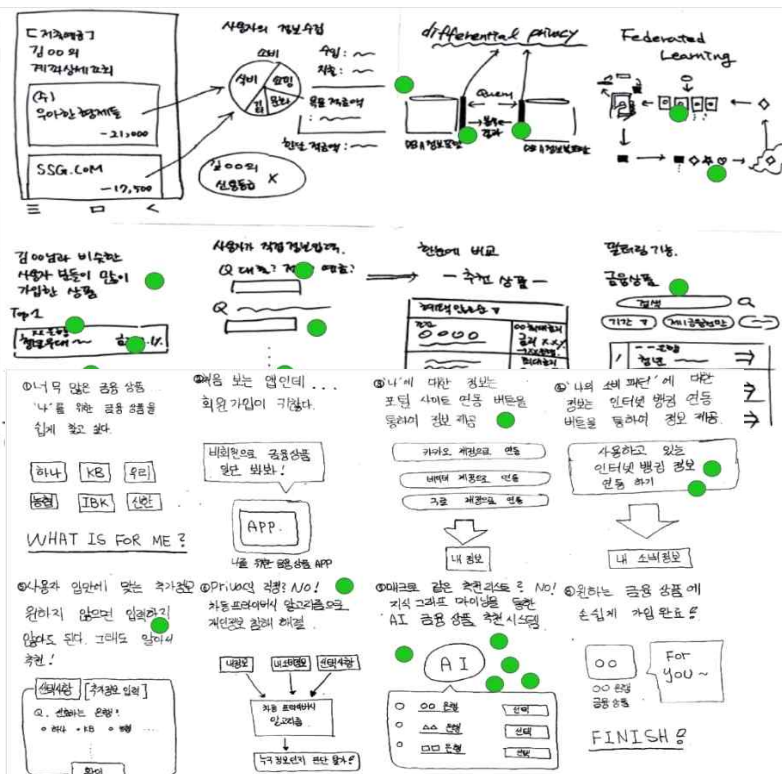 [저축예금]
김OO의
계좌상세조회
(주)
우아한형제들
-21,000
SSG.COM
-17,500
사용자의 정보수집
소비
식비
쇼핑
수입 :
지출 :
목표 적금액
현단 적금액 :
김OO의
신용등급 X
differential privacy
Query
결과
Federated
Learning
김OO님과 비슷한
사용자 분들이 많이
가입한 상품
Top 1
사용자가 직접 정보입력.
Q
한눈에 비교
- 추천 상품 -
필터링 기능.
금융상품
검색
기간
①너무 많은 금융 상품
'나'를 위한 금융 상품을
쉽게 찾고 싶다.
하나 KB 우리
농협 IBK 신한
WHAT IS FOR ME?
처음 보는 앱인데...
회원가입이 귀찮다.
비회원으로 금융상품
일단 봐봐!
APP.
나를 위한 금융상품 APP
③'나'에 대한 정보는
포털 사이트 연동 버튼을
통하여 정보 제공
카카오 계정으로 연동
네이버 계정으로 연동
구글 계정으로 연동
내 정보
'나의 소비 패턴'에 대한
정보는 인터넷 뱅킹 연동
버튼을 통하여 정보 제공.
사용하고 있는
인터넷 뱅킹 정보
연동 하기
내 소비정보
⑤사용자 입맛에 맞는 추가정보
원하지 않으면 입력하지
않아도 된다. 그래도 알아서
추천!
선택사항 [추가정보 입력]
Q. 선호하는 은행?
하나 KB
확인
⑥Privacy 걱정? No!
차등 프라이버시 알고리즘으로
개인정보 침해 해결
내정보 내소비정보 선택사항
차등 프라이버시
알고리즘
누구 정보인지 판단 불가!
매크로 같은 추천리스트? No!
지식 그래프 마이닝을 통한
AI 금융 상품 추천시스템
AI
OO 은행 선택
△△ 은행 선택
□□ 은행 선택
⑧원하는 금융 상품에
손쉽게 가입 완료!
OO
OO 은행
금융상품
For
you ~
FINISH!